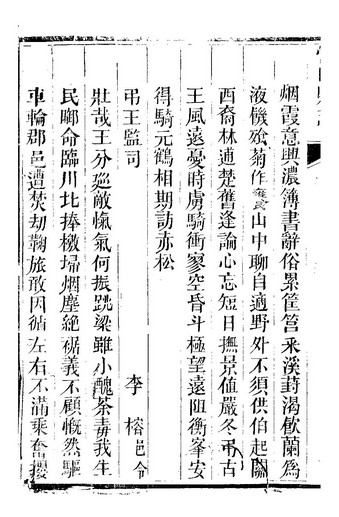 烟霞意興濃簿書辭俗累筐筥釆溪葑渴飲蘭為
液饑飱菊作饔山中聊自適野外不須供伯起關
西裔林逋楚舊逢論心忘短日撫景值嚴冬弔古
王風遠憂時虜騎衝寥空昏斗極望遠阻衡峯安
得騎元鶴相期訪赤松
弔王監司 李榕邑令
壯哉王分廵敵愾氣何振跳梁雖小醜荼毒我生
民啣命臨川北捧檄掃烟塵絶裾義不顧慨然驅
車輪郡邑遭焚劫鞠旅敢因循左右不滿乘奮擾